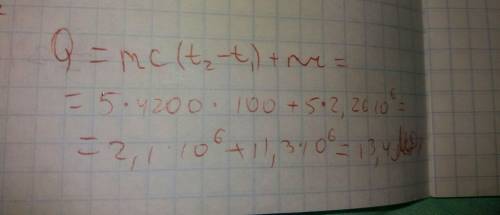 Q = mc(t₂-t₁)+mr =
= 5·4200·100 + 5·2,26·10⁶ =
= 2,1·10⁶ + 11,3·10⁶ = 13,4